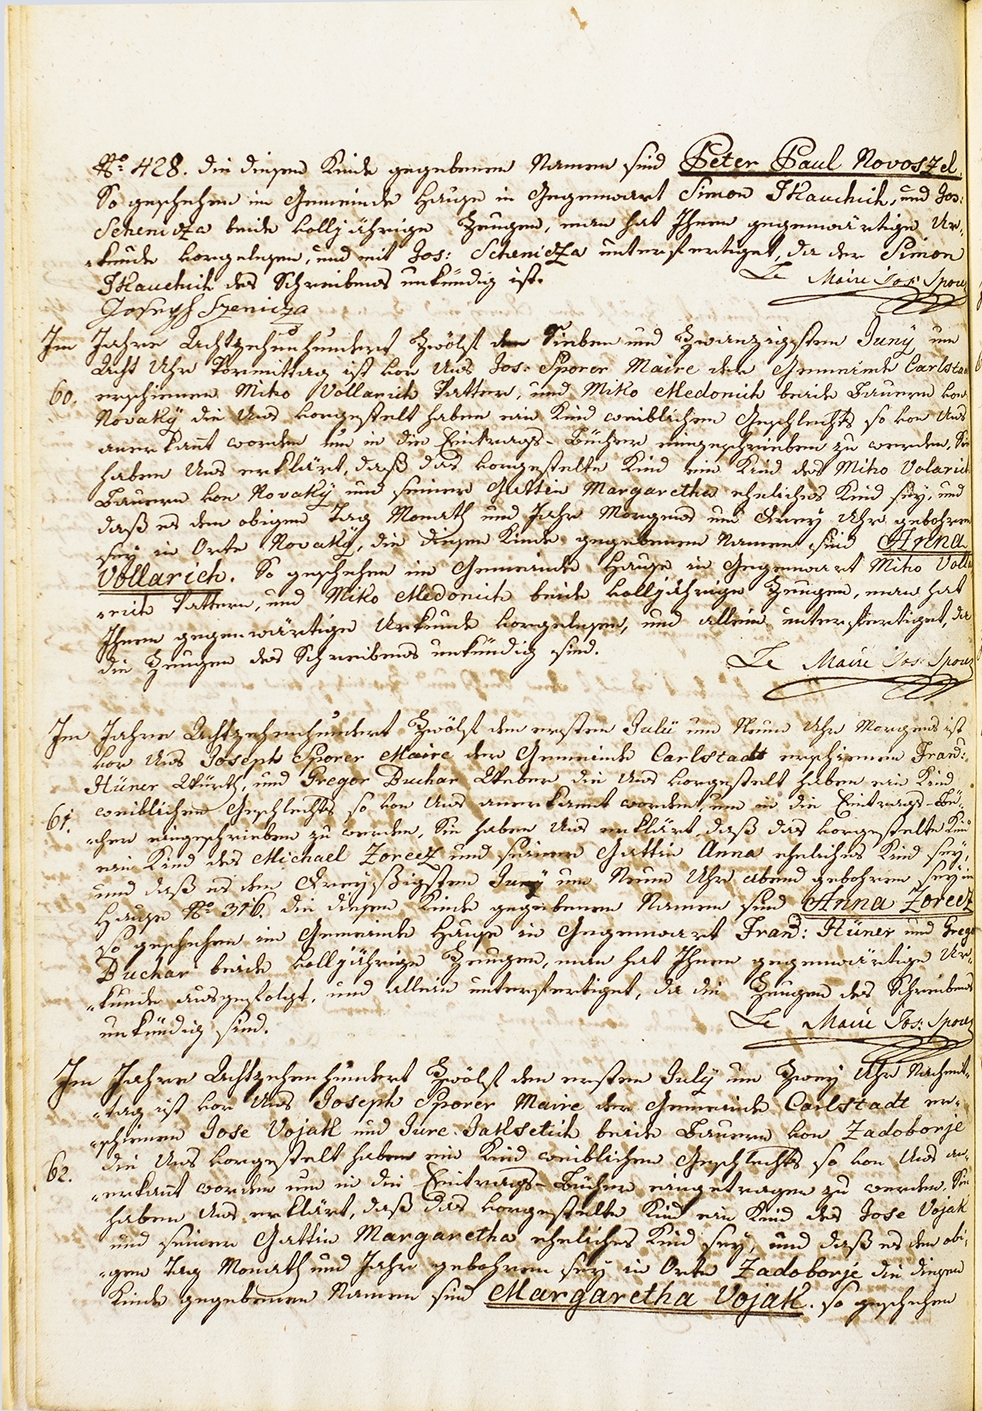 No. 428. die diesem Kinde gegebenen Namen sind Peter Paul Novoszel.
So geschehen im Gemeinde Hause in Gegenwart Simon Skauchich, und Jos:
Schenicza beide volljährige Zeugen, man hat Ihnen gegenwärtige Ur-
-kunde vorgelesen, und mit Jos: Schenicza unterfertiget, da der Simon
Skauchich des Schreibens unkündig ist.
Le Maire Jos: Sporer
Joseph Szenicza
Im Jahre Achtzehenhundert Zwölf den Sieben und Zwanzigsten Juny um
Acht Uhr Vormittag ist vor Uns Jos: Sporer Maire der Gemeinde Carlstadt
60. erschienen Miho Vollarich Vatter, und Miko Medonich beide Bauern von
Novaky die Uns vorgestelt haben ein Kind weiblichen Geschlechts so von Uns
anerkannt worden um in die Eintrags-Bücher eingeschrieben zu werden, Sie
haben Uns erklärt, daß das vorgestelte Kind ein Kind des Miho Volarich
Bauern von Novaky und seiner Gattin Margaretha eheliches Kind sey, und
daß es den obigen Tag Monath und Jahr Morgens um Drey Uhr gebohren
sey in Orte Novaky, die diesem Kinde gegebenen Namen sind Anna
Vollarich. So geschehen im Gemeinde Hause in Gegenwart Miho Volla
-rich Vattern, und Miko Medonich beide volljährige Zeugen, man hat
Ihnen gegenwärtige Urkunde vorgelesen, und allein unterfertiget, da
die Zeugen des Schreibens unkündig sind.
Le Maire Jos: Sporer
Im Jahre Achtzehenhundert Zwölf den ersten Julii um Neun Uhr Morgens ist
vor Uns Joseph Sporer Maire der Gemeinde Carlstadt erschienen Franz:
Hüner Würth, und Gregor Buchar Weber die Uns vorgestelt haben ein Kind
61. weiblichen Geschlechts so von Uns anerkannt worden, um in die Eintrags-Bü-
-cher eingeschrieben zu werden, Sie haben Uns erklärt, daß das vorgestelte Kind
ein Kind des Michael Zorecz und seiner Gattin Anna eheliches Kind sey,
und daß es den Dreyßigsten Juny um Neun Uhr abend gebohren sey in
Hause No. 316. die diesem Kinde gegebenen Namen sind Anna Zorecz
So geschehen im Gemeinde Hause in Gegenwart Franz: Hüner und Gregor
Buchar beide volljährige Zeugen, man hat Ihnen gegenwärtige Ur-
-kunde ausgefolgt, und allein unterfertiget, da die Zeugen des Schreibens
unkündig sind.
Le Maire Jos: Sporer
Im Jahre Achtzehenhundert Zwölf den ersten July um Zwey Uhr Nachmit-
-tag ist vor Uns Joseph Sporer Maire der Gemeinde Carlstadt er-
-schienen Jose Vojak und Jure Jaksetich beide Bauern von Zadoborje
62. die Uns vorgestelt haben ein Kind weiblichen Geschlechts so von Uns an-
-erkannt worden um in die Eintrags-Bücher eingetragen zu werden. Sie
haben Uns erklärt, daß das vorgestelte Kind ein Kind des Jose Vojak
und seiner Gattin Margaretha eheliches Kind sey, und daß es den obi-
-gen Tag Monath und Jahr gebohren sey in Orte Zadoborje die diesem
Kinde gegebenen Namen sind Margaretha Vojak. so geschehen